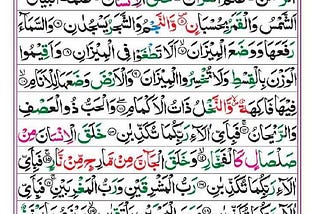 الشَّمْسُ وَالْقَمَرُ بِحُسْبَانٍ ۝ وَّالنَّجْمُ وَالشَّجَرُ يَسْجُدٰنِ ۝ وَالسَّمَآءَ
رَفَعَهَا وَوَضَعَ الْمِيْزَانَ ۝ اَلَّا تَطْغَوْا فِى الْمِيْزَانِ ۝ وَاَقِيْمُوا
الْوَزْنَ بِالْقِسْطِ وَلَا تُخْسِرُوا الْمِيْزَانَ ۝ وَالْاَرْضَ وَضَعَهَا لِلْاَنَامِ ۝
فِيْهَا فَاكِهَةٌ وَّالنَّخْلُ ذَاتُ الْاَكْمَامِ ۝ وَالْحَبُّ ذُو الْعَصْفِ
وَالرَّيْحَانُ ۝ فَبِاَىِّ اٰلَآءِ رَبِّكُمَا تُكَذِّبٰنِ ۝ خَلَقَ الْاِنْسَانَ مِنْ
صَلْصَالٍ كَالْفَخَّارِ ۝ وَخَلَقَ الْجَآنَّ مِنْ مَّارِجٍ مِّنْ نَّارٍ ۝ فَبِاَىِّ
اٰلَآءِ رَبِّكُمَا تُكَذِّبٰنِ ۝ رَبُّ الْمَشْرِقَيْنِ وَرَبُّ الْمَغْرِبَيْنِ ۝ فَبِاَىِّ